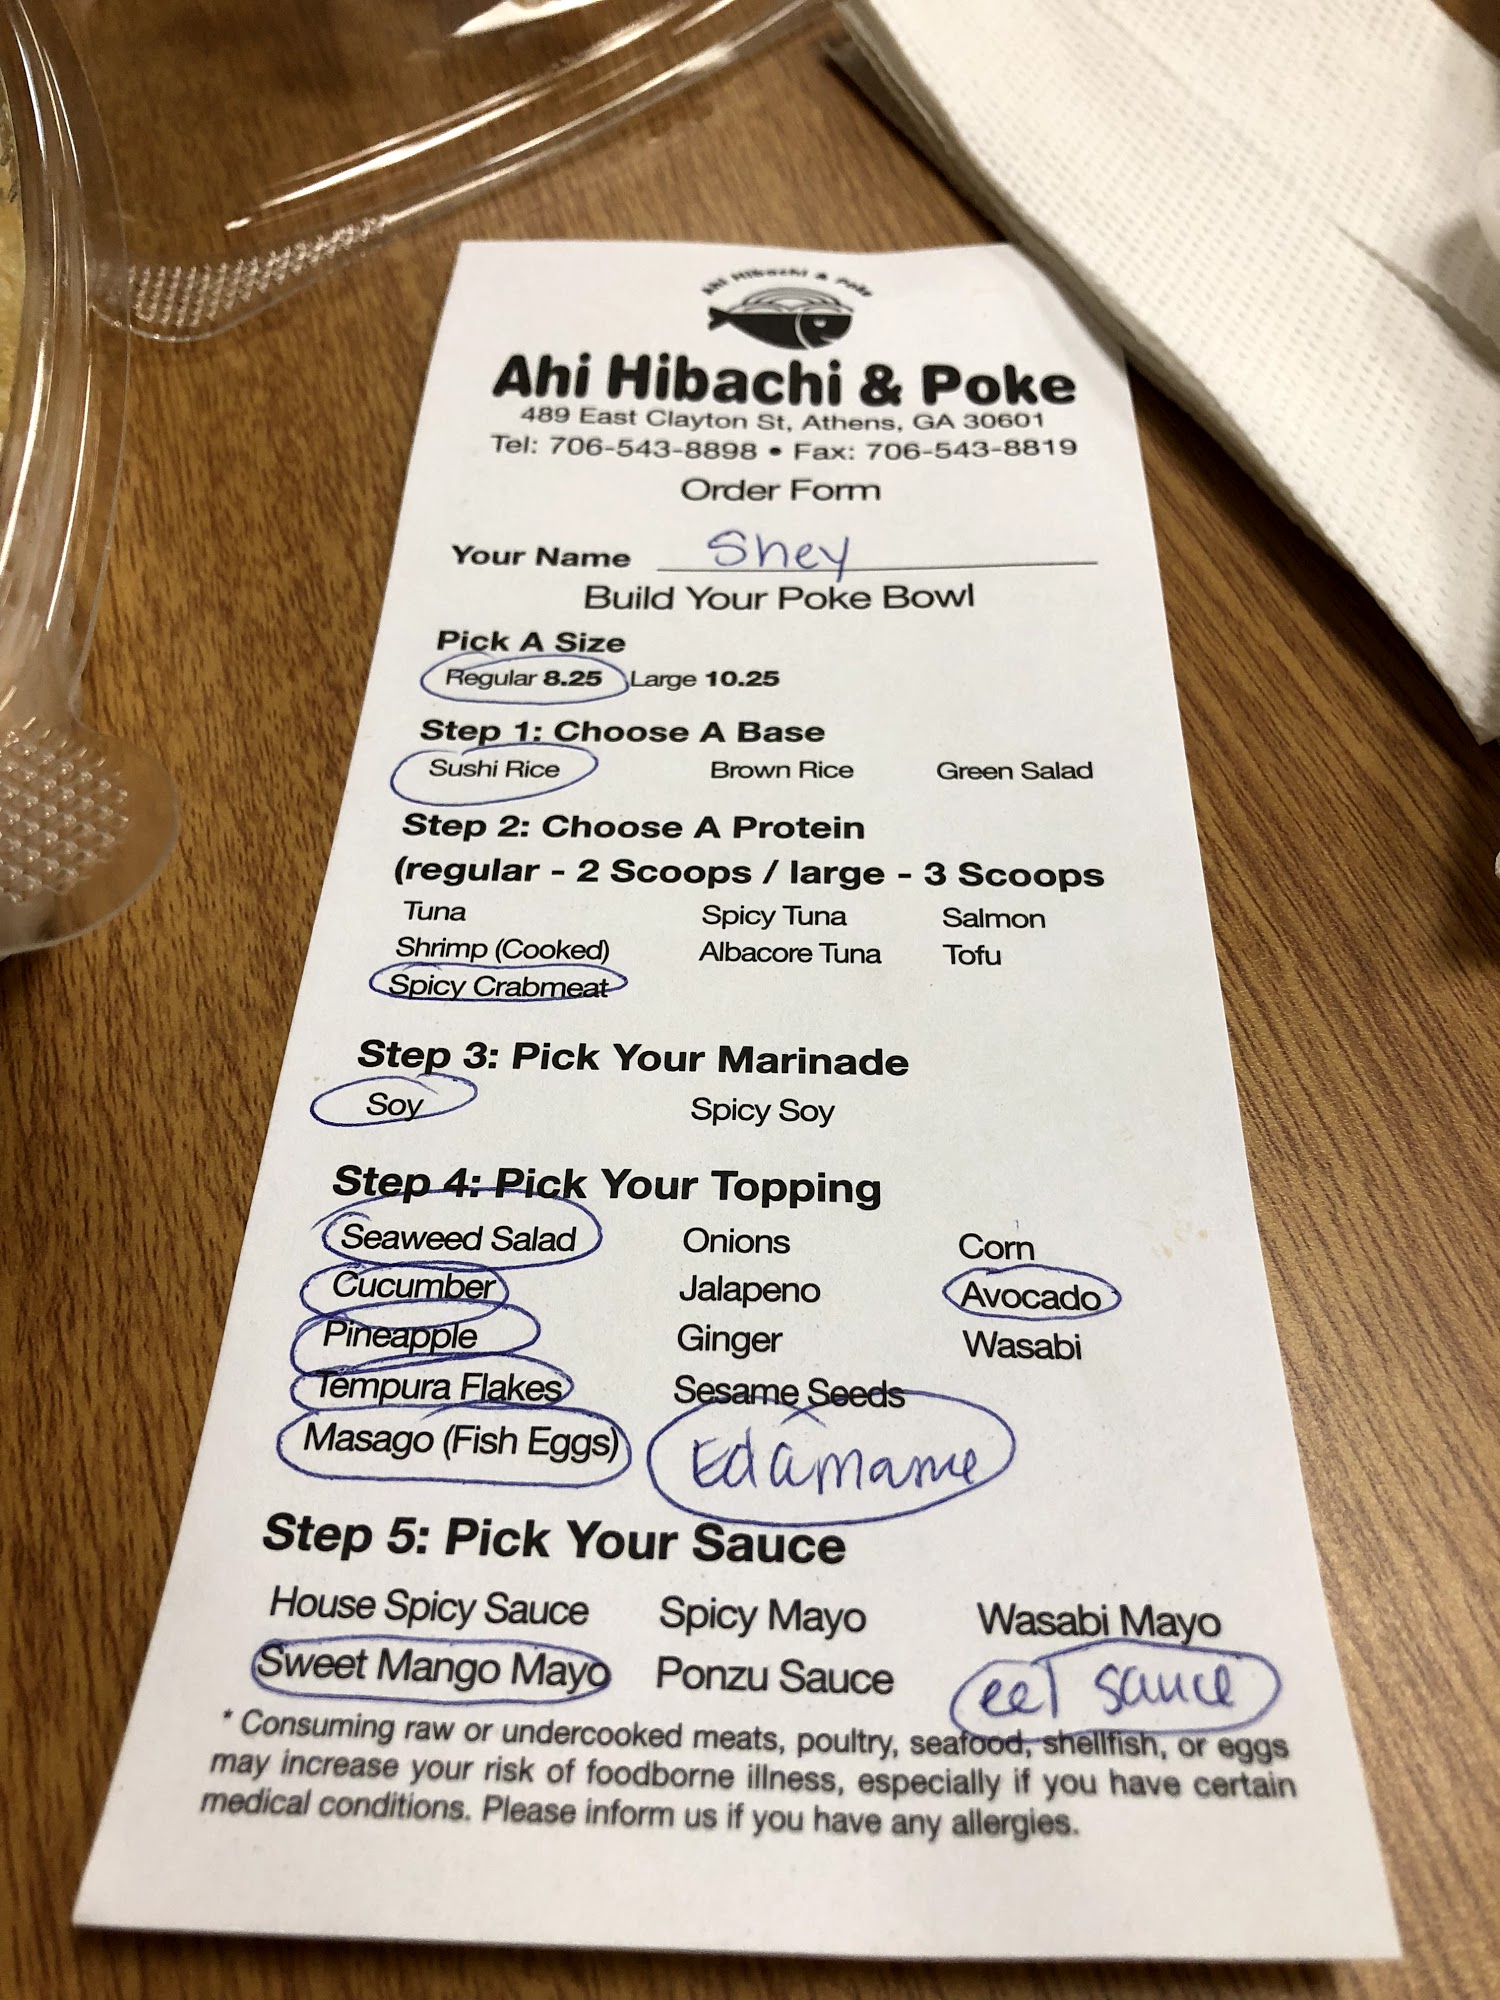 Ahi Hibachi & Poke
Ahi Hibachi & Poke
489 East Clayton St, Athens, GA 30601
Tel: 706-543-8898 • Fax: 706-543-8819
Order Form
Your Name Shey
Build Your Poke Bowl
Pick A Size
Regular 8.25 Large 10.25
Step 1: Choose A Base
Sushi Rice Brown Rice Green Salad
Step 2: Choose A Protein
(regular - 2 Scoops / large - 3 Scoops
Tuna Spicy Tuna Salmon
Shrimp (Cooked) Albacore Tuna Tofu
Spicy Crabmeat
Step 3: Pick Your Marinade
Soy Spicy Soy
Step 4: Pick Your Topping
Seaweed Salad Onions Corn
Cucumber Jalapeno Avocado
Pineapple Ginger Wasabi
Tempura Flakes Sesame Seeds
Masago (Fish Eggs) Edamame
Step 5: Pick Your Sauce
House Spicy Sauce Spicy Mayo Wasabi Mayo
Sweet Mango Mayo Ponzu Sauce eel sauce
* Consuming raw or undercooked meats, poultry, seafood, shellfish, or eggs
may increase your risk of foodborne illness, especially if you have certain
medical conditions. Please inform us if you have any allergies.